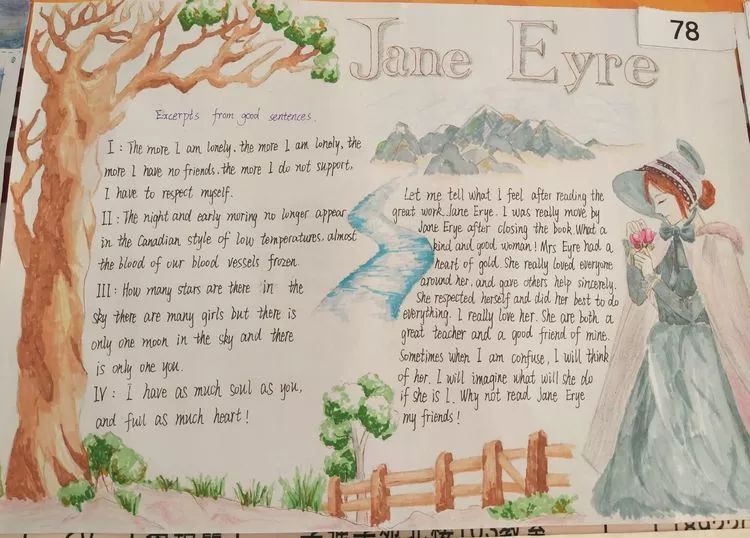 Jane Eyre
78
Excerpts from good sentences.
I : The more I am lonely, the more I am lonely, the
more I have no friends, the more I do not support,
I have to respect myself.
II : The night and early moring no longer appear
in the Canadian style of low temperatures, almost
the blood of our blood vessels frozen.
III : How many stars are there in the
sky there are many girls but there is
only one moon in the sky and there
is only one you.
IV : I have as much soul as you,
and full as much heart!
Let me tell what I feel after reading the
great work Jane Erye. I was really move by
Jane Erye after closing the book. What a
kind and good woman! Mrs Eyre had a
heart of gold. She really loved everyone
around her, and gave others help sincerely.
She respected herself and did her best to do
everything. I really love her. She are both a
great teacher and a good friend of mine.
Sometimes when I am confuse, I will think
of her. I will imagine what will she do
if she is I. Why not read Jane Erye
my friends!